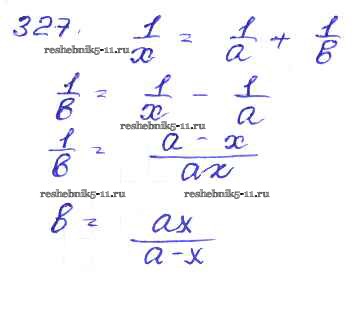 327. 1/x = 1/a + 1/в
reshebnik5-11.ru
1/в = 1/x - 1/a
reshebnik5-11.ru
1/в = a - x/ax
reshebnik5-11.ru reshebnik5-11.ru
в = ax/a-x